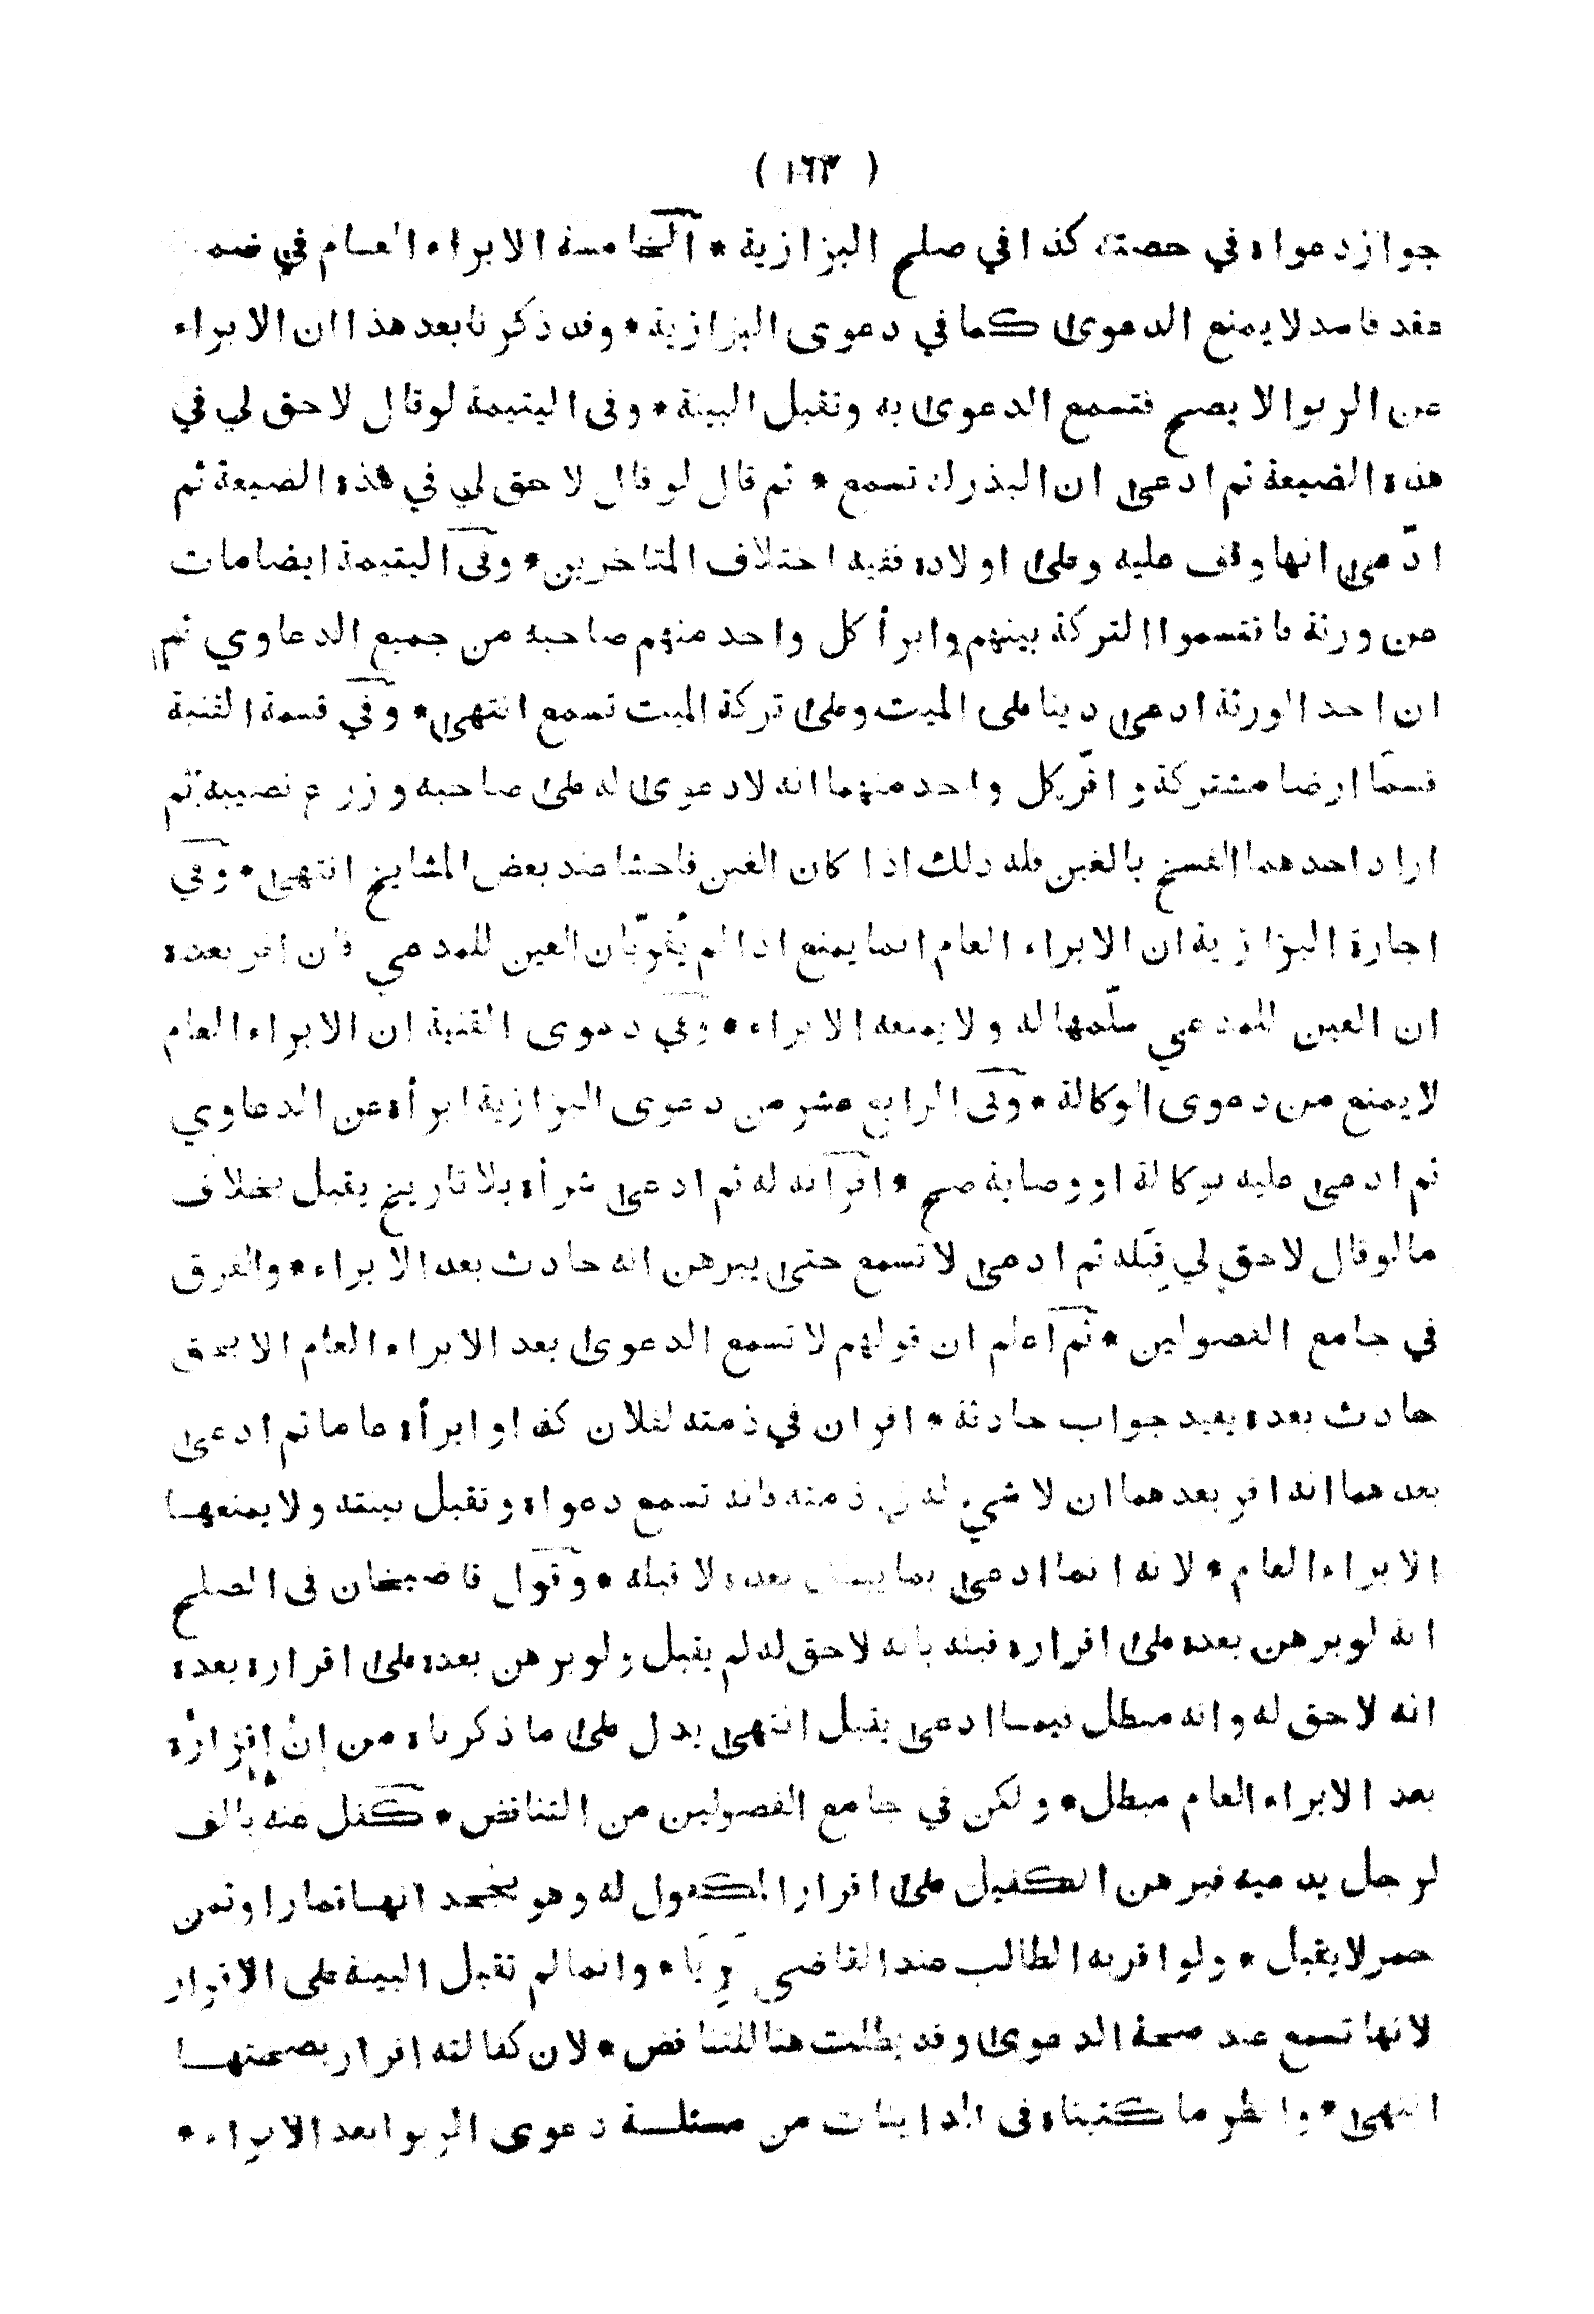 ( ١٦٣ )
جواز دعواه في حصته كذا في صلح البزازية * الخامسة الابراء العام في ضمن
عقد فاسد لا يمنع الدعوى كما في دعوى البزازية * وقد ذكرنا بعد هذا ان الابراء
عن الربوا لا يصح فتسمع الدعوى به وتقبل البينة * وفى اليتيمة لو قال لا حق لي في
هذه الضيعة ثم ادعى ان البذر له تسمع * ثم قال لو قال لا حق لي في هذه الضيعة ثم
ادّعى انها وقف عليه وعلى اولاده ففيه اختلاف المتاخرين * وفى اليتيمة ايضا مات
عن ورثة فاقتسموا التركة بينهم وابرأ كل واحد منهم صاحبه من جميع الدعاوي ثم
ان احد الورثة ادعى دينا على الميت وعلى تركة الميت تسمع انتهى * وفي قسمة القنية
قسمَا ارضا مشتركة واقرّ كل واحد منهما انه لا دعوى له على صاحبه وزرع نصيبه ثم
اراد احدهما الفسخ بالغبن فله ذلك اذا كان الغبن فاحشا عند بعض المشايخ انتهى * وفي
اجارة البزازية ان الابراء العام انما يمنع اذا لم يُقرّ بان العين للمدعي فان اقر بعده
ان العين للمدعي سلّمها له ولا يمنعه الابراء * وفي دعوى القنية ان الابراء العام
لا يمنع من دعوى الوكالة * وفى الرابع عشر من دعوى البزازية ابرأه عن الدعاوي
ثم ادعى عليه بوكالة او وصاية صح * اقر انه له ثم ادعى شرأه بلا تاريخ يقبل بخلاف
ما لو قال لا حق لي قِبَله ثم ادعى لا تسمع حتى يبرهن انه حادث بعد الابراء * والفرق
في جامع الفصولين * ثم اعلم ان قولهم لا تسمع الدعوى بعد الابراء العام الا بحق
حادث بعده يفيد جواب حادثة * اقر ان في ذمته لفلان كذا وابرأه عاما ثم ادعى
بعدهما انه اقر بعدهما ان لا شيء له في ذمته فانه تسمع دعواه وتقبل بينته ولا يمنعها
الابراء العام * لانه انما ادعى بما يبطل بعده لا قبله * وقول قاضيخان فى الصلح
انه لو برهن بعده على اقراره قبله بانه لا حق له لم يقبل ولو برهن بعده على اقراره بعده
انه لا حق له وانه مبطل فيما ادعى يقبل انتهى يدل على ما ذكرناه من ان اقراره
بعد الابراء العام مبطل * ولكن في جامع الفصولين من التناقض * كفل عنه بالف
لرجل يدعيه فبرهن الكفيل على اقرار المكفول له وهو يجحد انها قمار او ثمن
خمر لا يقبل * ولو اقر به الطالب عند القاضى وانما لم تقبل البينة على الاقرار
لانها تسمع عند صحة الدعوى وقد بطلت هنا للتناقض * لان كفالته اقرار بصحتها
انتهى * وانظر ما كتبناه فى المداينات من مسئلة دعوى الربوا بعد الابراء *